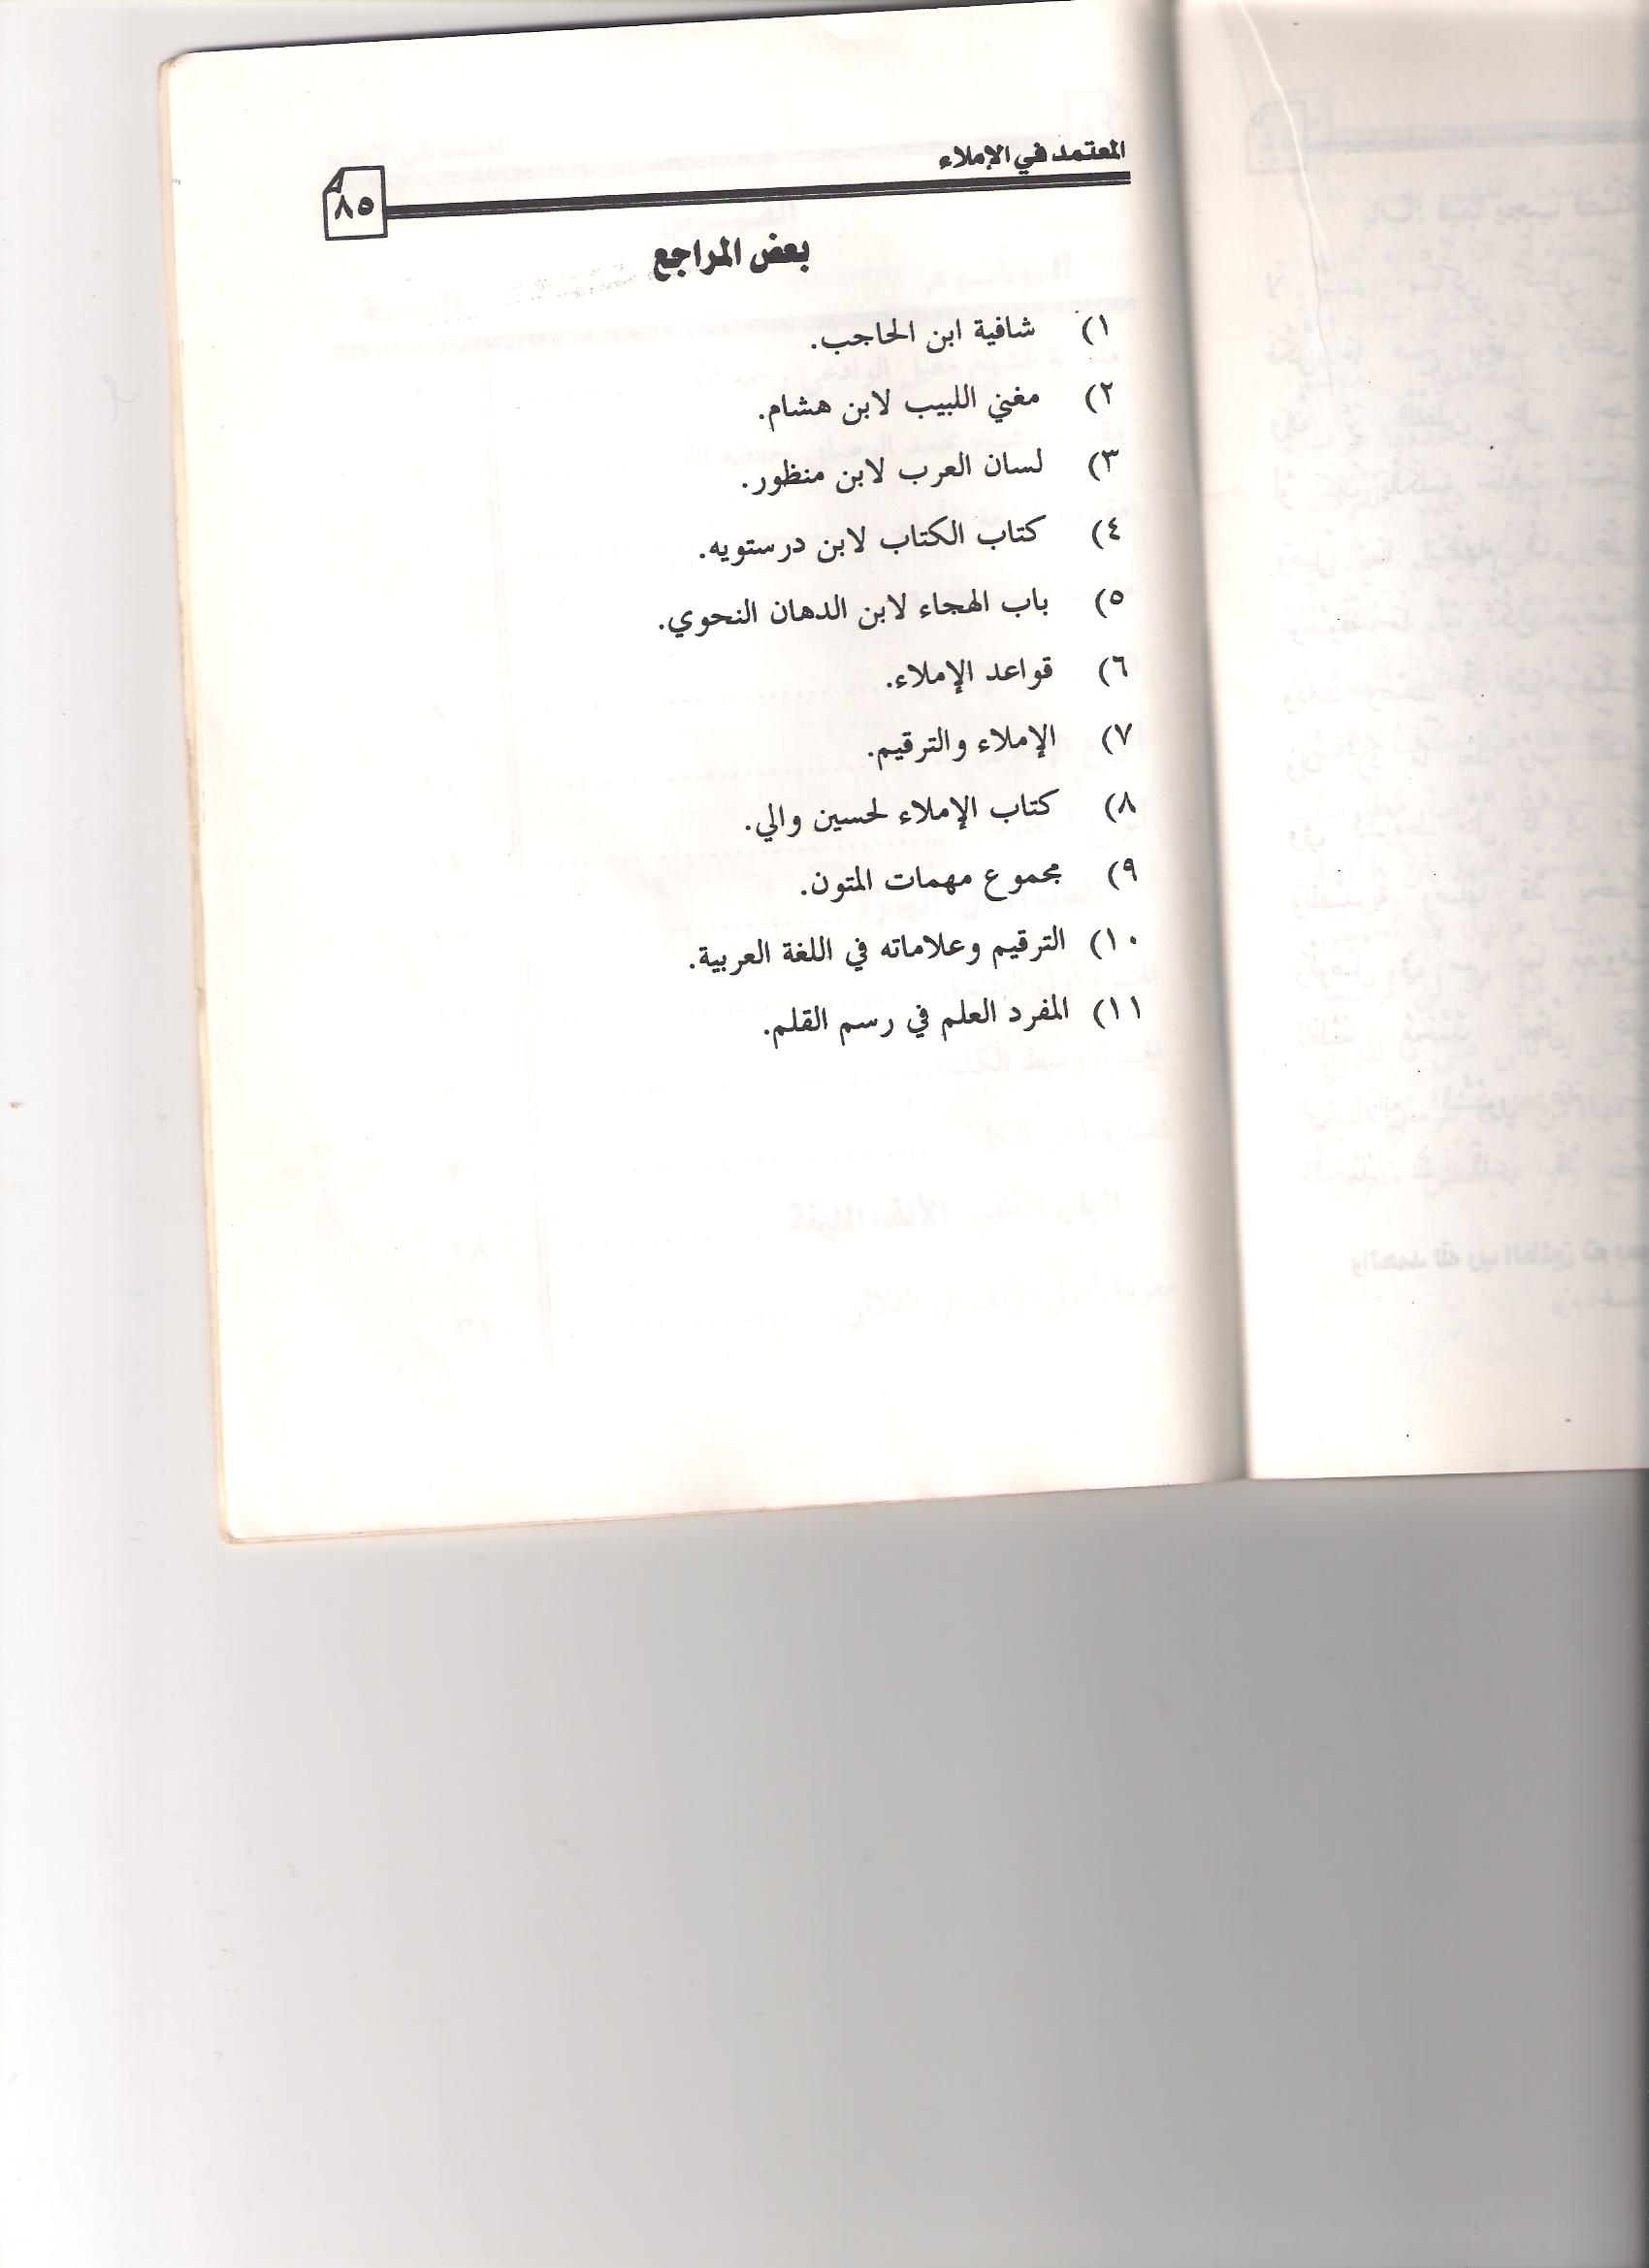 المعتمد في الإملاء
٨٥
بعض المراجع
١) شافية ابن الحاجب.
٢) مغني اللبيب لابن هشام.
٣) لسان العرب لابن منظور.
٤) كتاب الكتاب لابن درستويه.
٥) باب الهجاء لابن الدهان النحوي.
٦) قواعد الإملاء.
٧) الإملاء والترقيم.
٨) كتاب الإملاء لحسين والي.
٩) مجموع مهمات المتون.
١٠) الترقيم وعلاماته في اللغة العربية.
١١) المفرد العلم في رسم القلم.